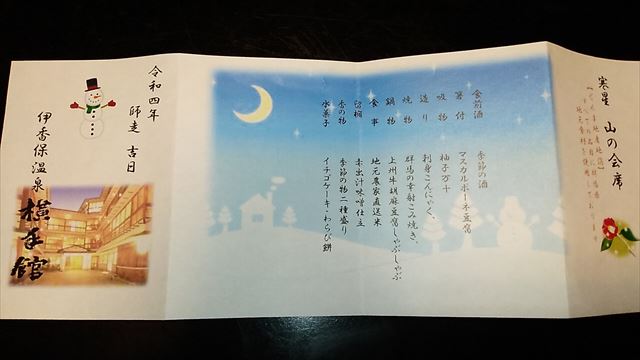 寒星 山の会席
食前酒 季節の酒
箸付 マスカルポーネ豆腐
吸物 柚子万十
造り 刺身こんにゃく、
焼物 群馬の幸射込み焼き、
鍋物 上州牛胡麻豆腐しゃぶしゃぶ
食事 地元農家直送米
留椀 赤出汁味噌仕立
香の物 季節の物二種盛り
水菓子 イチゴケーキ・わらび餅
令和四年
師走 吉日
伊香保温泉
横手館